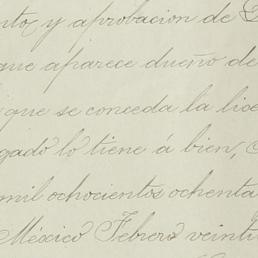 nto, y aprobacion de
que aparece dueño de
que se conceda la lice
gado lo tiene á bien,
mil ochocientos ochenta
México Febrero veinti